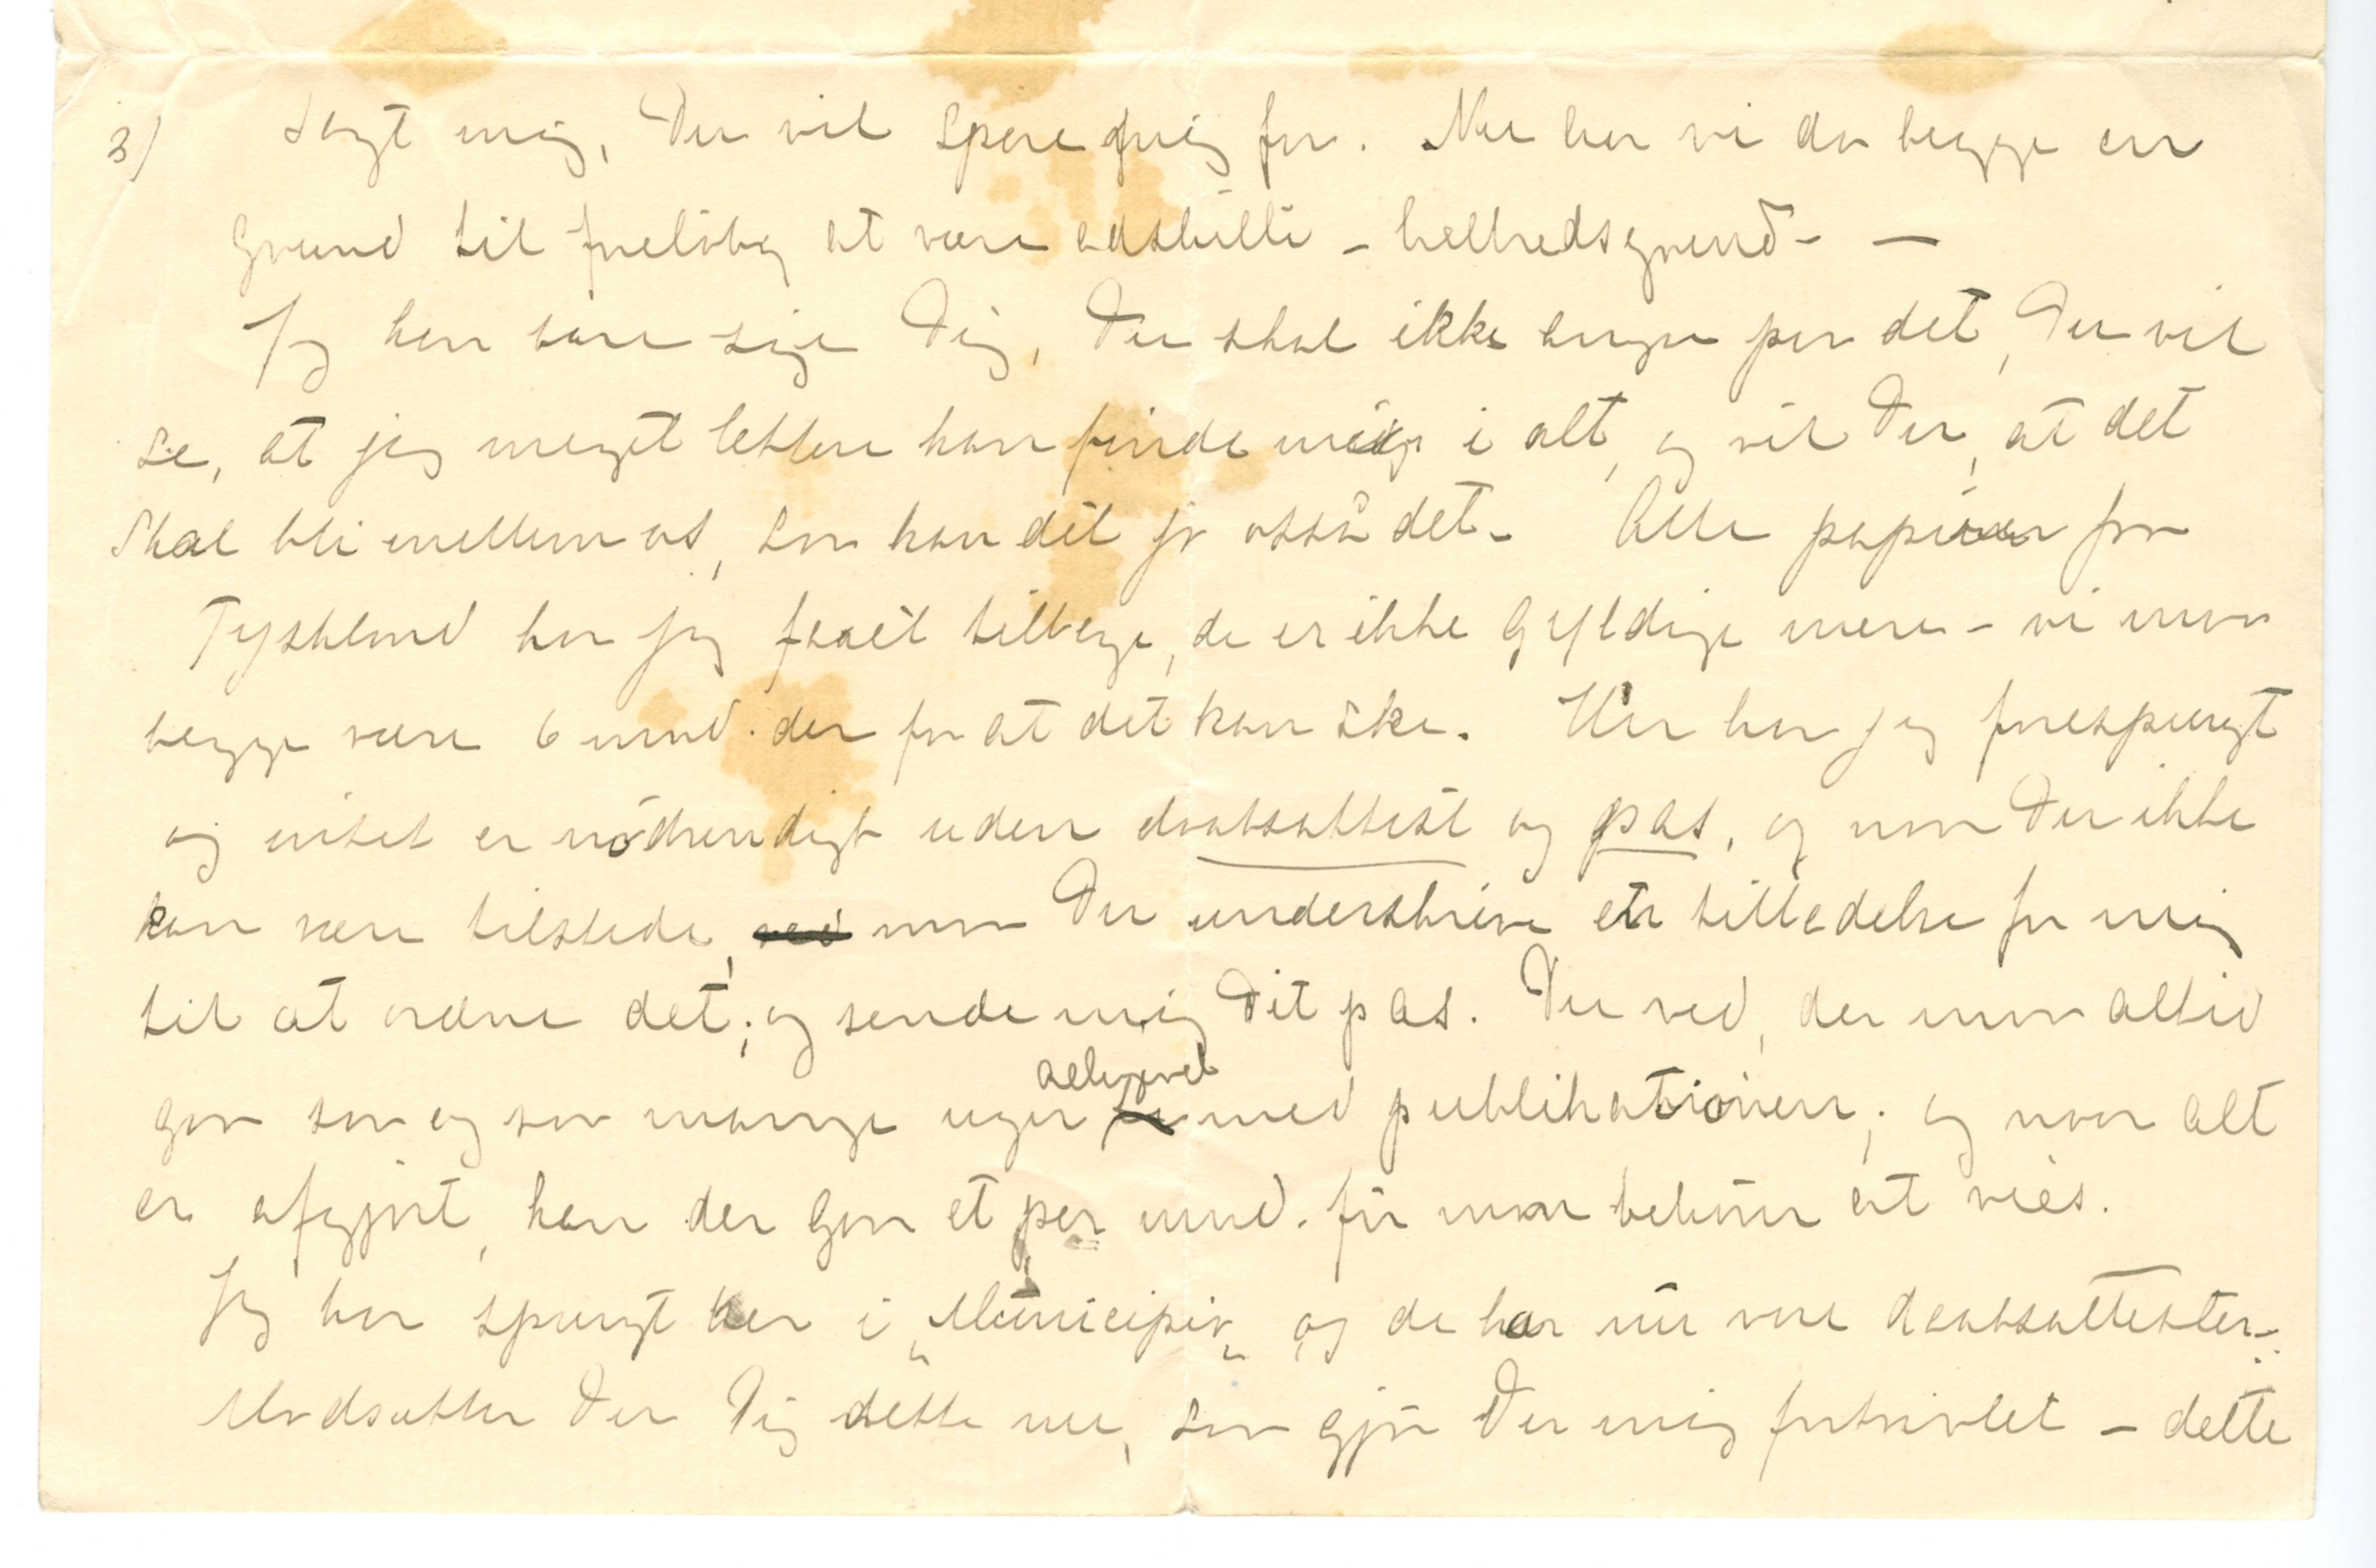 3) sagt mig, Du vil spare mig for. Nu har vi da begge en
Grund til foreløbig at være adskilte - helbredsgrund - —
Jeg kan bare sige Dig, Du skal ikke angre paa det, Du vil
se, at jeg meget lettere kan finde mig i alt, og vil Du, at det
skal bli mellem os, saa kan det jo osså det. Alle papirer fra
Tyskland har jeg faaet tilbage, de er ikke gyldige mere - vi maa
begge være 6 mnd. der for at det kan ske. Her har jeg forespurgt
og intet er nödvendigt uden daabsattest og pas, og naar Du ikke
kan være tilstede, maa Du underskrive en tilladelse for mig
til at ordne det; og sende mig Dit pas. Du ved, der maa altid
gaa saa og saa mange uger alligevel med publikationen; og naar alt
er afgjort, kan der gaa et par mnd. før man behøver at vies.
Jeg har spurgt her i „Municipio„ og de har nu vore daabsattester.
Modsætter Du Dig dette nu, saa gjør Du mig fortvivlet - dette